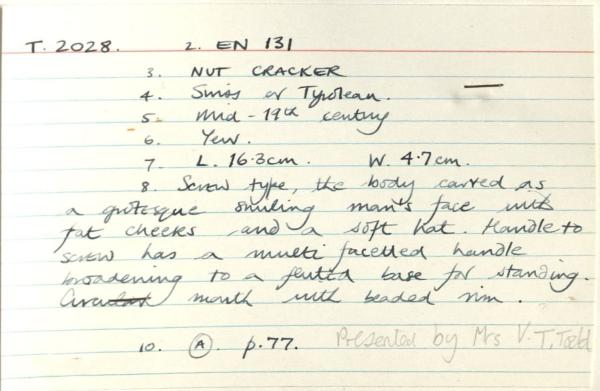 T. 2028. 2. EN 131
3. NUT CRACKER
4. Swiss or Tyrolean.
5. Mid-19th century
6. Yew.
7 L. 16.3cm. W. 4.7cm.
8. Screw type, the body carved as
a grotesque smiling man's face with
fat cheeks and a soft hat. Handle to
screw has a multi facetted handle
broadening to a fluted base for standing.
Circular mouth with beaded rim.
10. A. p.77. Presented by Mrs V.T. Todd